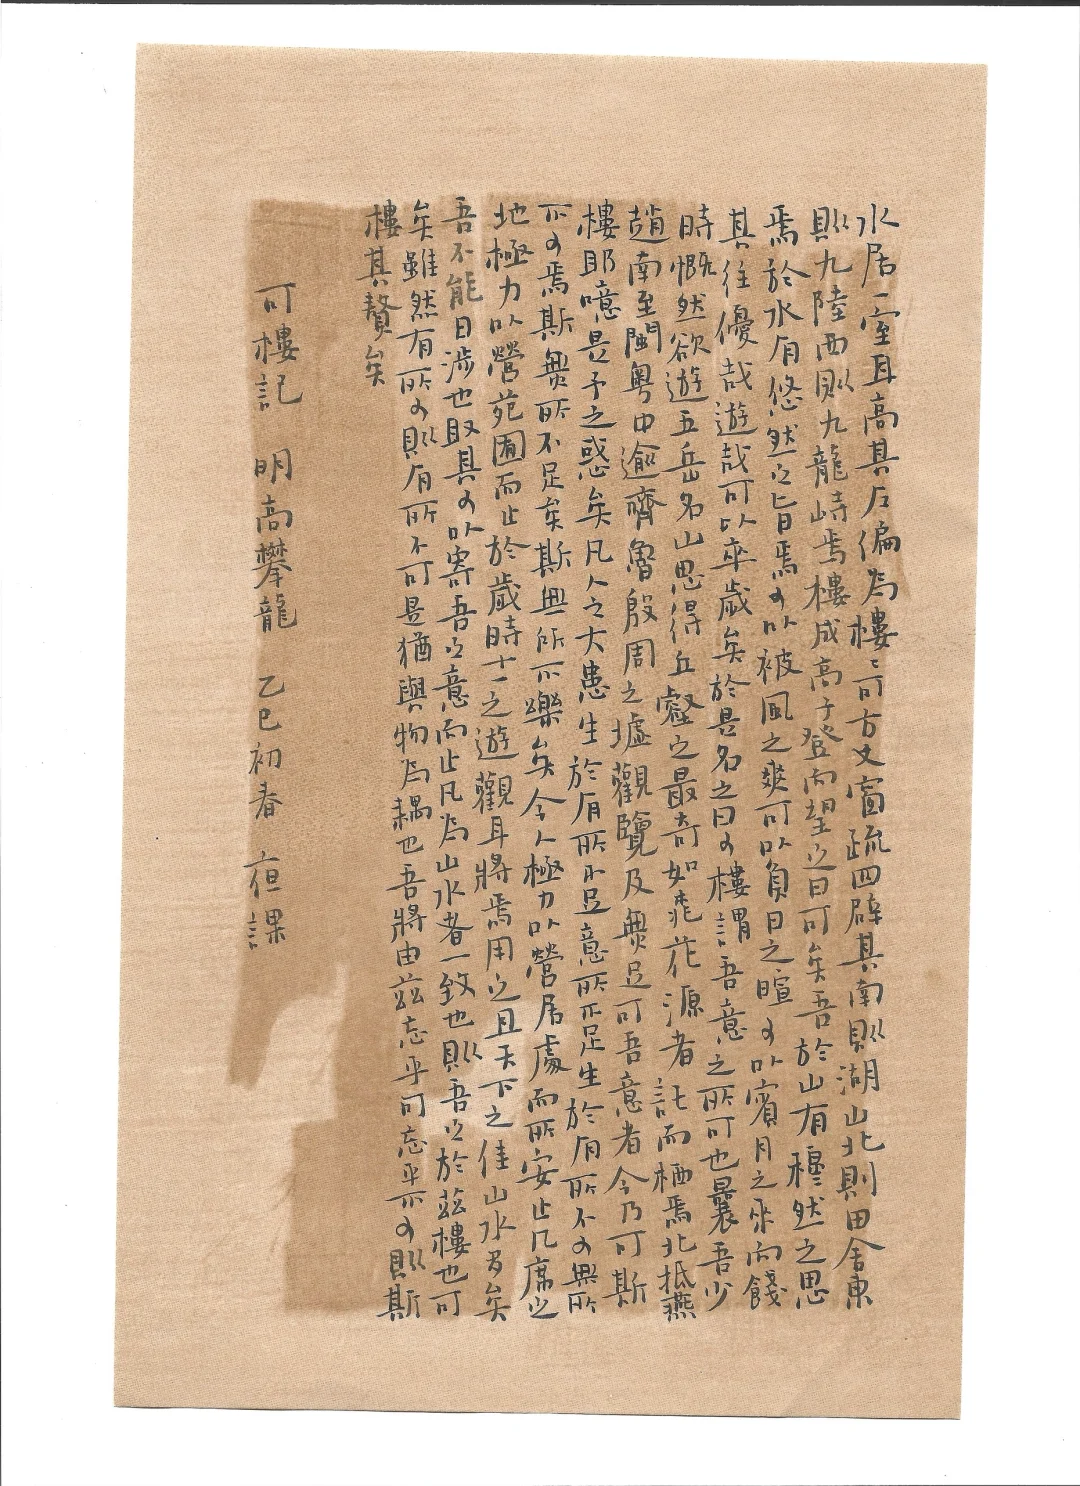 水居一室耳高其左偏為樓〻可方丈窗疏四辟其南則湖山北則田舍東
則九陸西則九龍峙焉樓成高子登而望之曰可矣吾於山有穆然之思
焉於水有悠然之旨焉可以被風之爽可以負日之暄可以賓月之來而餞
其往優哉遊哉可以卒歲矣於是名之曰可樓謂吾意之所可也曩吾少
時慨然欲遊五岳名山思得丘壑之最奇如桃花源者託而栖焉北抵燕
趙南至閩粵中逾齊魯殷周之墟觀覽及無足可吾意者今乃可斯
樓耶噫是予之惑矣凡人之大患生於有所不足意所不足生於有所不可無所
不可焉斯無所不足矣斯無所不樂矣今人極力以營居處而所安止几席之
地極力以營苑囿而止於歲時十一之遊觀耳將焉用之且天下之佳山水多矣
吾不能日涉也取其可以寄吾之意而止凡為山水者一致也則吾之於茲樓也可
矣雖然有所可則有所不可是猶與物為耦也吾將由茲忘乎可忘乎不可則斯
樓其贅矣
可樓記 明高攀龍 乙巳初春 夜課